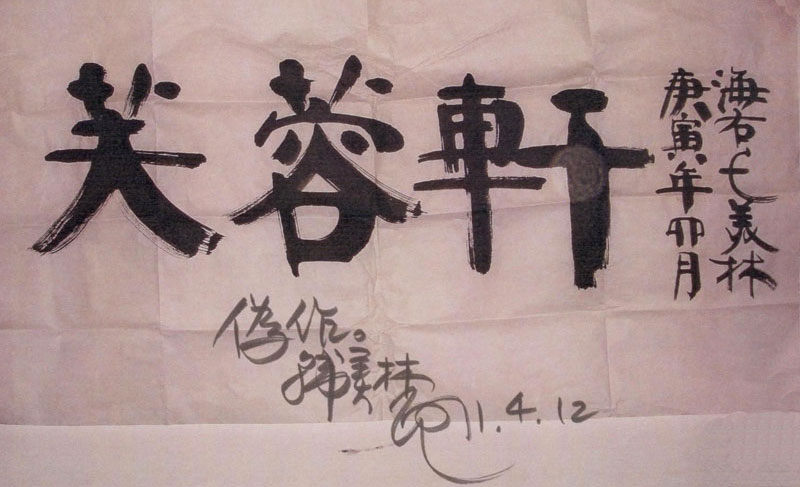 芙蓉軒
海右七美林
庚寅年卯月
偽作。
韩美林
11.4.12